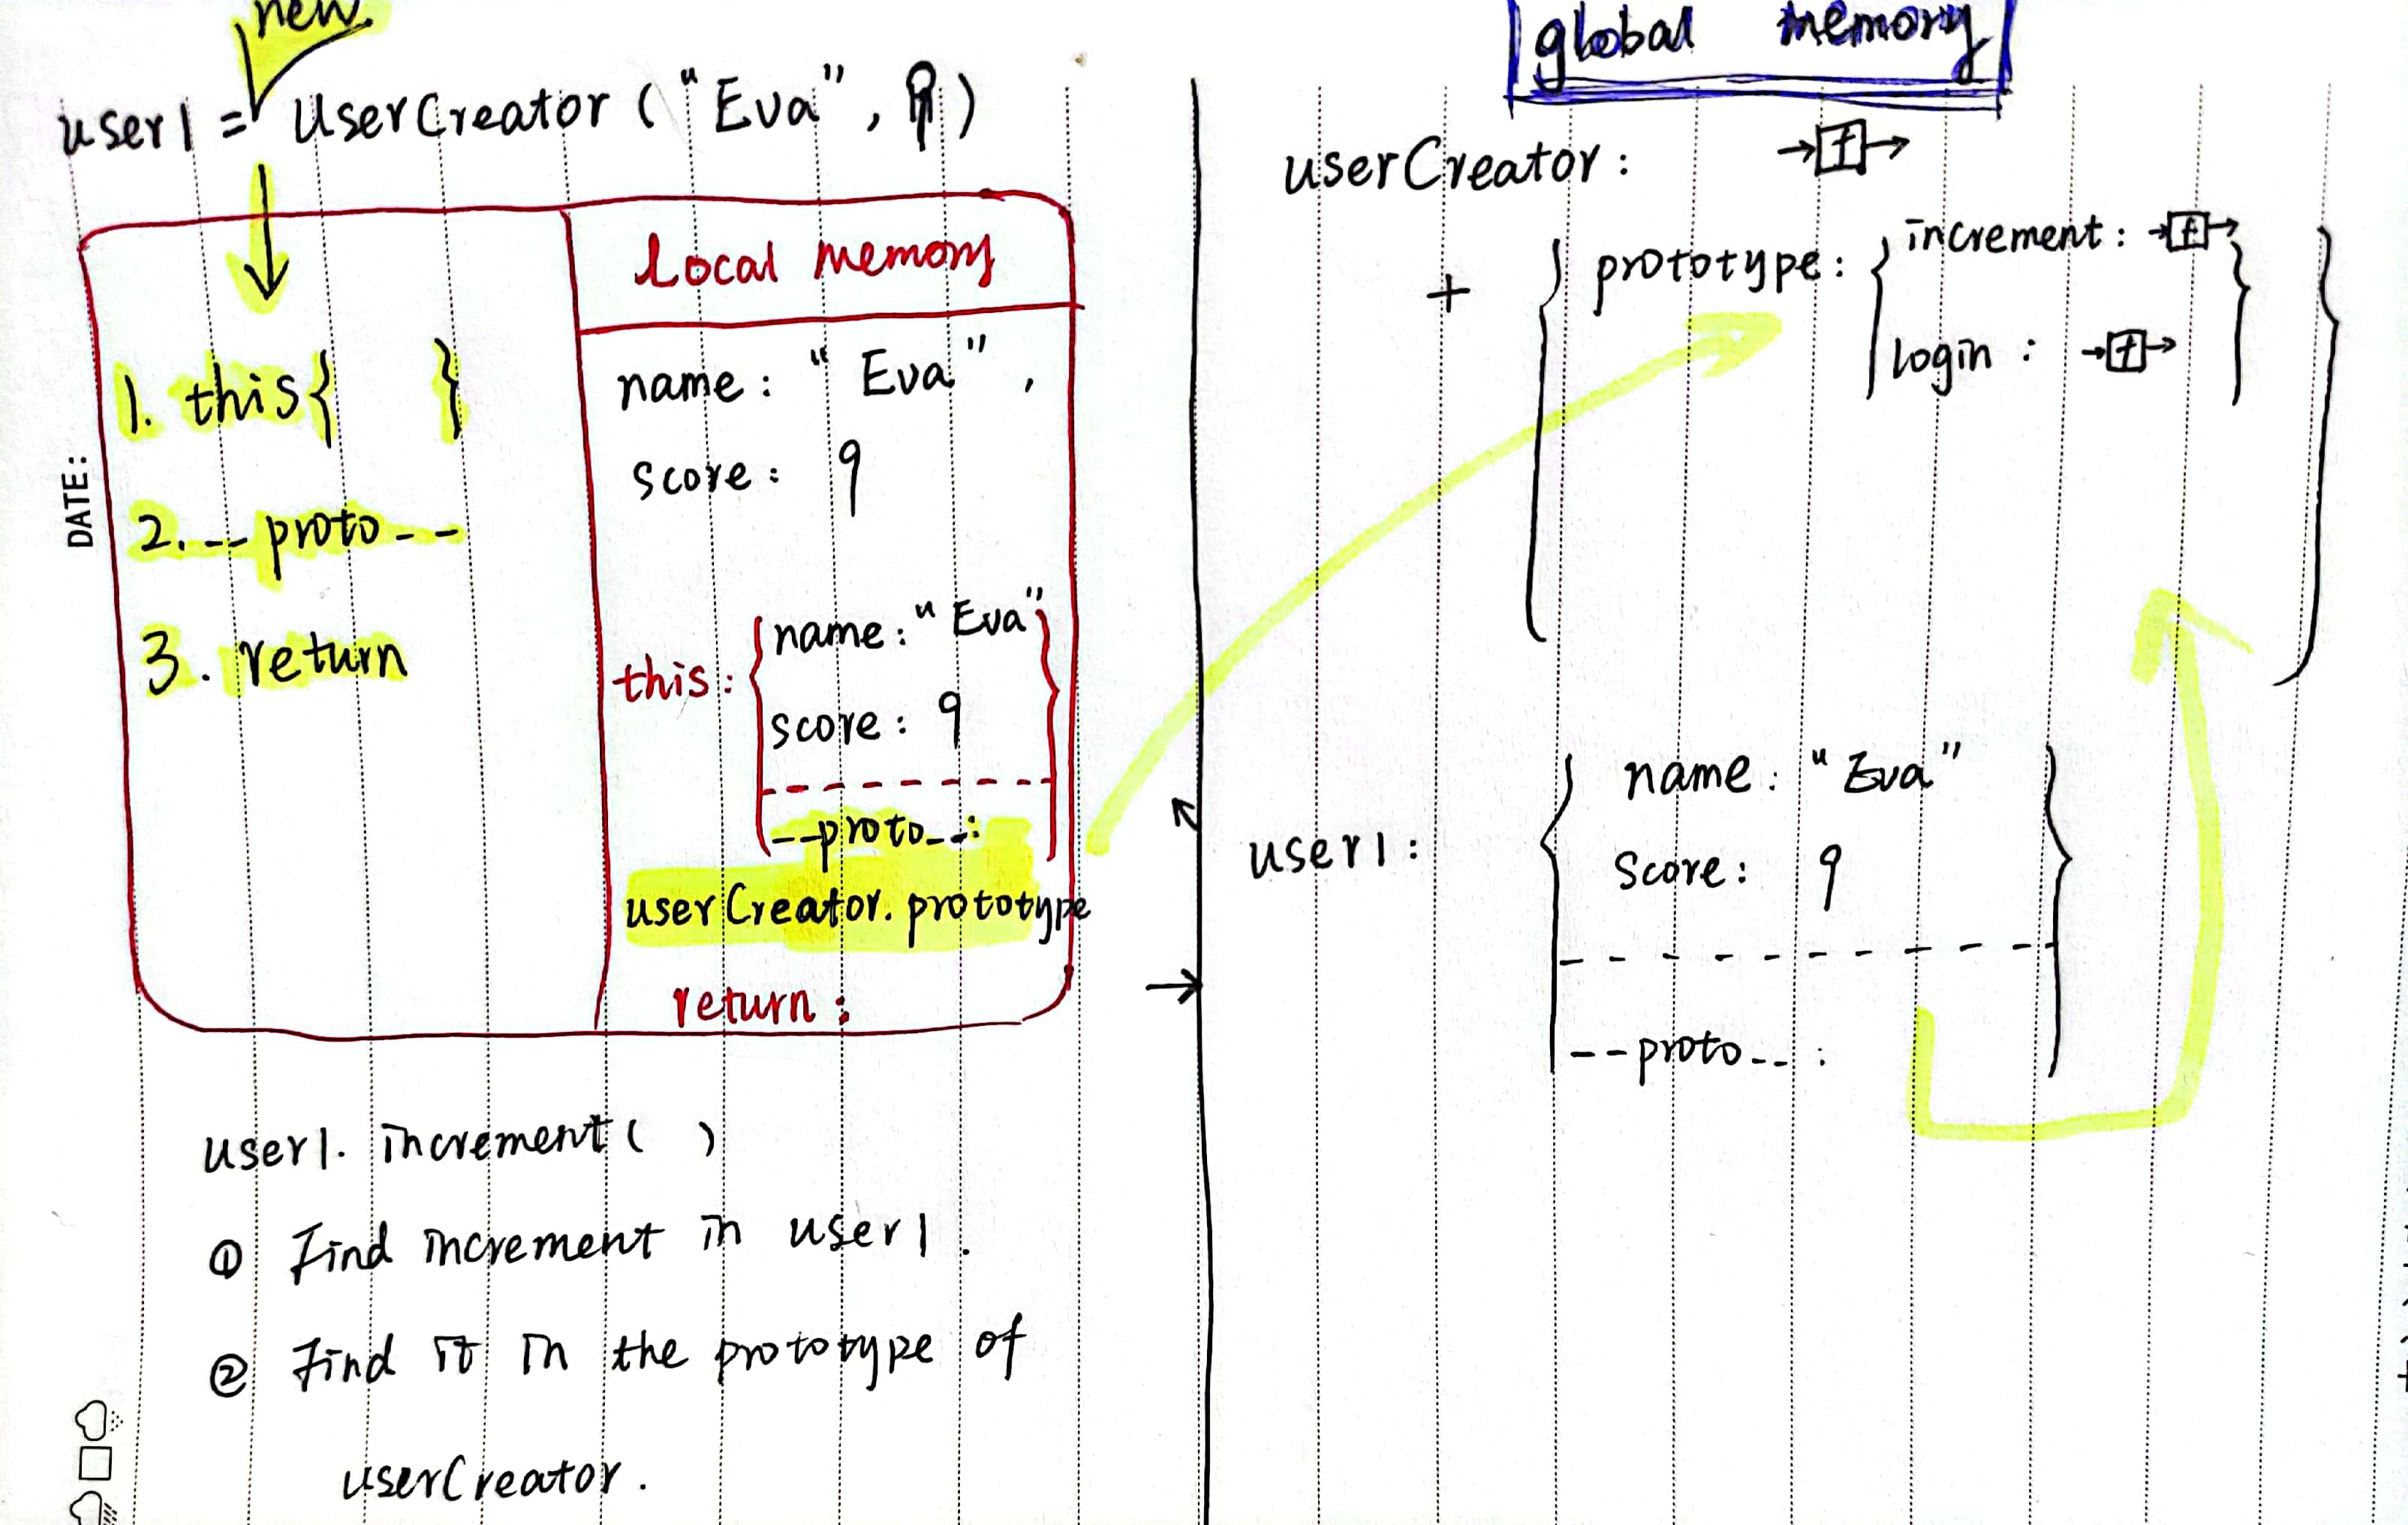 new
user1 = userCreator ("Eva", 9)
DATE:
1. this{ }
2. __proto__
3. return
Local memory
name: "Eva",
score: 9
this: {name: "Eva"
score: 9}
__proto__:
userCreator.prototype
return:
user1. increment( )
① Find increment in user1.
② Find it in the prototype of
userCreator.
global memory
userCreator: →[f]→
+ { prototype: { increment: →[f]→
login: →[f]→ } }
user1: { name: "Eva"
score: 9
__proto__: }